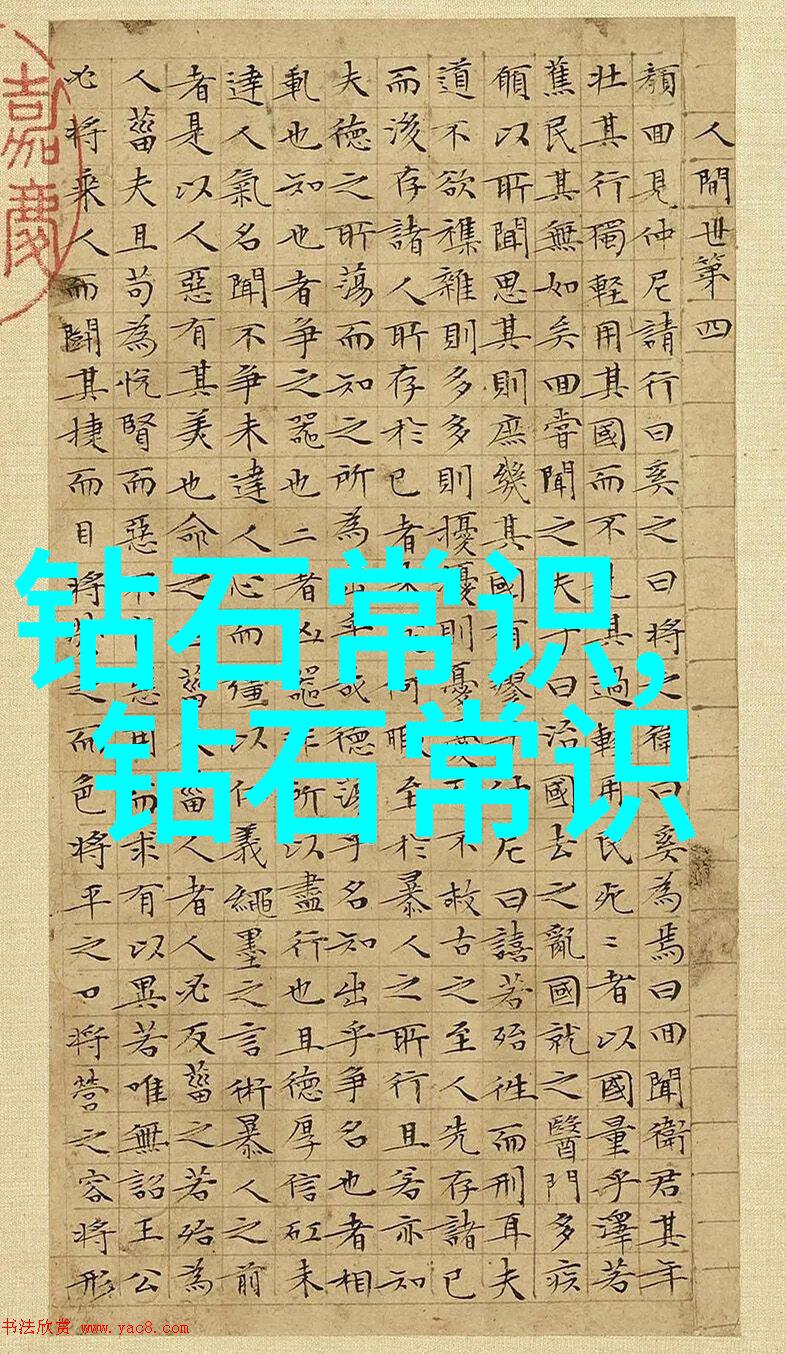 人間世第四
顏回見仲尼請行曰奚之曰將之衛曰奚為焉曰回聞衛君其年
壯其行獨輕用其國而不見其過輕用民死〻者以國量乎澤若
蕉民其無如矣回嘗聞之夫子曰治國去之亂國就之醫門多疾
願以所聞思其則庶幾其國有瘳仲尼曰譆若殆往而刑耳夫
道不欲襍雜則多多則擾擾則憂不救古之至人先存諸己
而後存諸人所存於已者未何暇至於暴人之所行且若亦知
夫德之所蕩而知之所為出乎哉德蕩乎名知出乎爭名也者相
軋也知也者爭之器也二者凶器非所以盡行也且德厚信矼未
達人氣名聞不爭未達人心而彊以仁義繩墨之言術暴人之前
者是以人惡有其美也命之菑人菑人者人必反菑之若殆為
人菑夫且苟為悅賢而惡不惡用而求有以異若唯無詔王公
必將乘人而鬭其捷而目將之而色將平之口將營之容將形
嘉慶
钻石常识,
钻石常识
书法欣赏 www.yac8.com